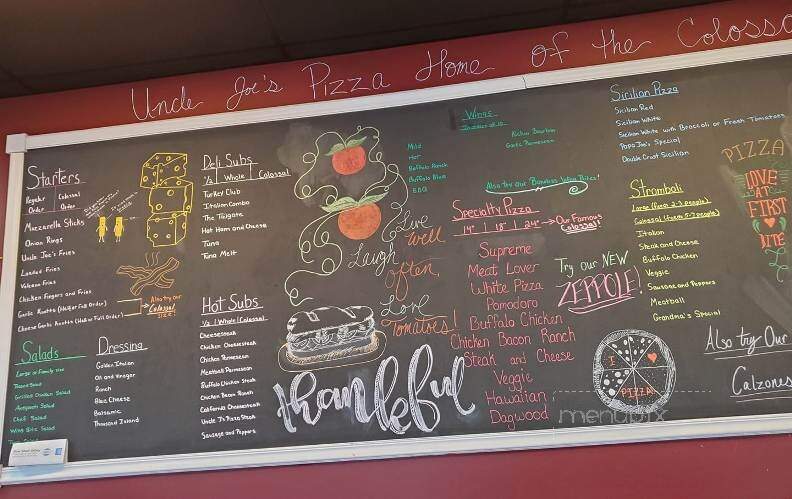 Uncle Joe's Pizza Home of the Colossa
Starters
Regular Order Colossal Order
Mozzarella Sticks
Onion Rings
Uncle Joe's Fries
Loaded Fries
Volcano Fries
Chicken Fingers and Fries
Garlic Knotts (Half or Full Order)
Cheese Garlic Knotts (Half or Full Order)
Also try our
Colossal
Size!
Salads
Large or Family Size
Tossed Salad
Grilled Chicken Salad
Antipasto Salad
Chef Salad
Wing Bite Salad
Dressing
Golden Italian
Oil and Vinegar
Ranch
Blue Cheese
Balsamic
Thousand Island
Deli Subs
1/2 | Whole | Colossal
Turkey Club
Italian Combo
The Tailgate
Hot Ham and Cheese
Tuna
Tuna Melt
Hot Subs
1/2 | Whole | Colossal
Cheesesteak
Chicken Cheesesteak
Chicken Parmesean
Meatball Parmesean
Buffalo Chicken Steak
Chicken Bacon Ranch
California Cheesesteak
Uncle J's Pizza Steak
Sausage and Peppers
Live
Well
Laugh
often,
Love
Tomatoes!
thankful
Wings
Mild
Hot
Buffalo Ranch
Buffalo Bleu
BBQ
Kickin Bourbon
Garlic Parmesean
Also Try Our Boneless Wing Bites!
Specialty Pizza
14" | 18" | 24" → Our Famous
Colossal!
Supreme
Meat Lover
White Pizza
Pomodoro
Buffalo Chicken
Chicken Bacon Ranch
Steak and Cheese
Veggie
Hawaiian
Dagwood
Try our NEW
ZEPPOLE!
Sicilian Pizza
Sicilian Red
Sicilian White
Sicilian White with Broccoli or Fresh Tomatoes
Papa Joe's Special
Double Crust Sicilian
Stromboli
Large (Feeds 2-3 people)
Colossal (Feeds 5-7 people)
Italian
Steak and Cheese
Buffalo Chicken
Veggie
Sausage and Peppers
Meatball
Grandma's Special
I
PIZZA
PIZZA
LOVE
AT
FIRST
BITE
Also try Our
Calzones
menupix